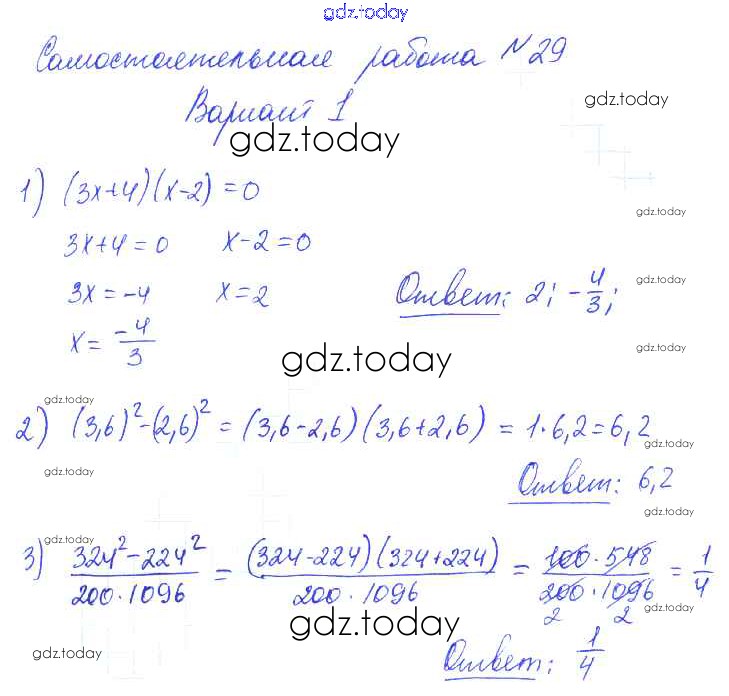 gdz.today
Самостоятельная работа №29
gdz.today
Вариант 1
gdz.today
1) (3x+4)(x-2)=0
gdz.today
3x+4=0 x-2=0
gdz.today
3x=-4 x=2 Ответ: 2; -4/3;
x= -4/3
gdz.today
gdz.today
gdz.today
2) (3,6)²-(2,6)² = (3,6-2,6)(3,6+2,6) = 1·6,2=6,2
gdz.today
gdz.today
Ответ: 6,2
gdz.today
gdz.today
3) 324²-224²/200·1096 = (324-224)(324+224)/200·1096 = 100·548/200·1096 = 1/4
2 2
gdz.today
gdz.today
gdz.today
Ответ: 1/4